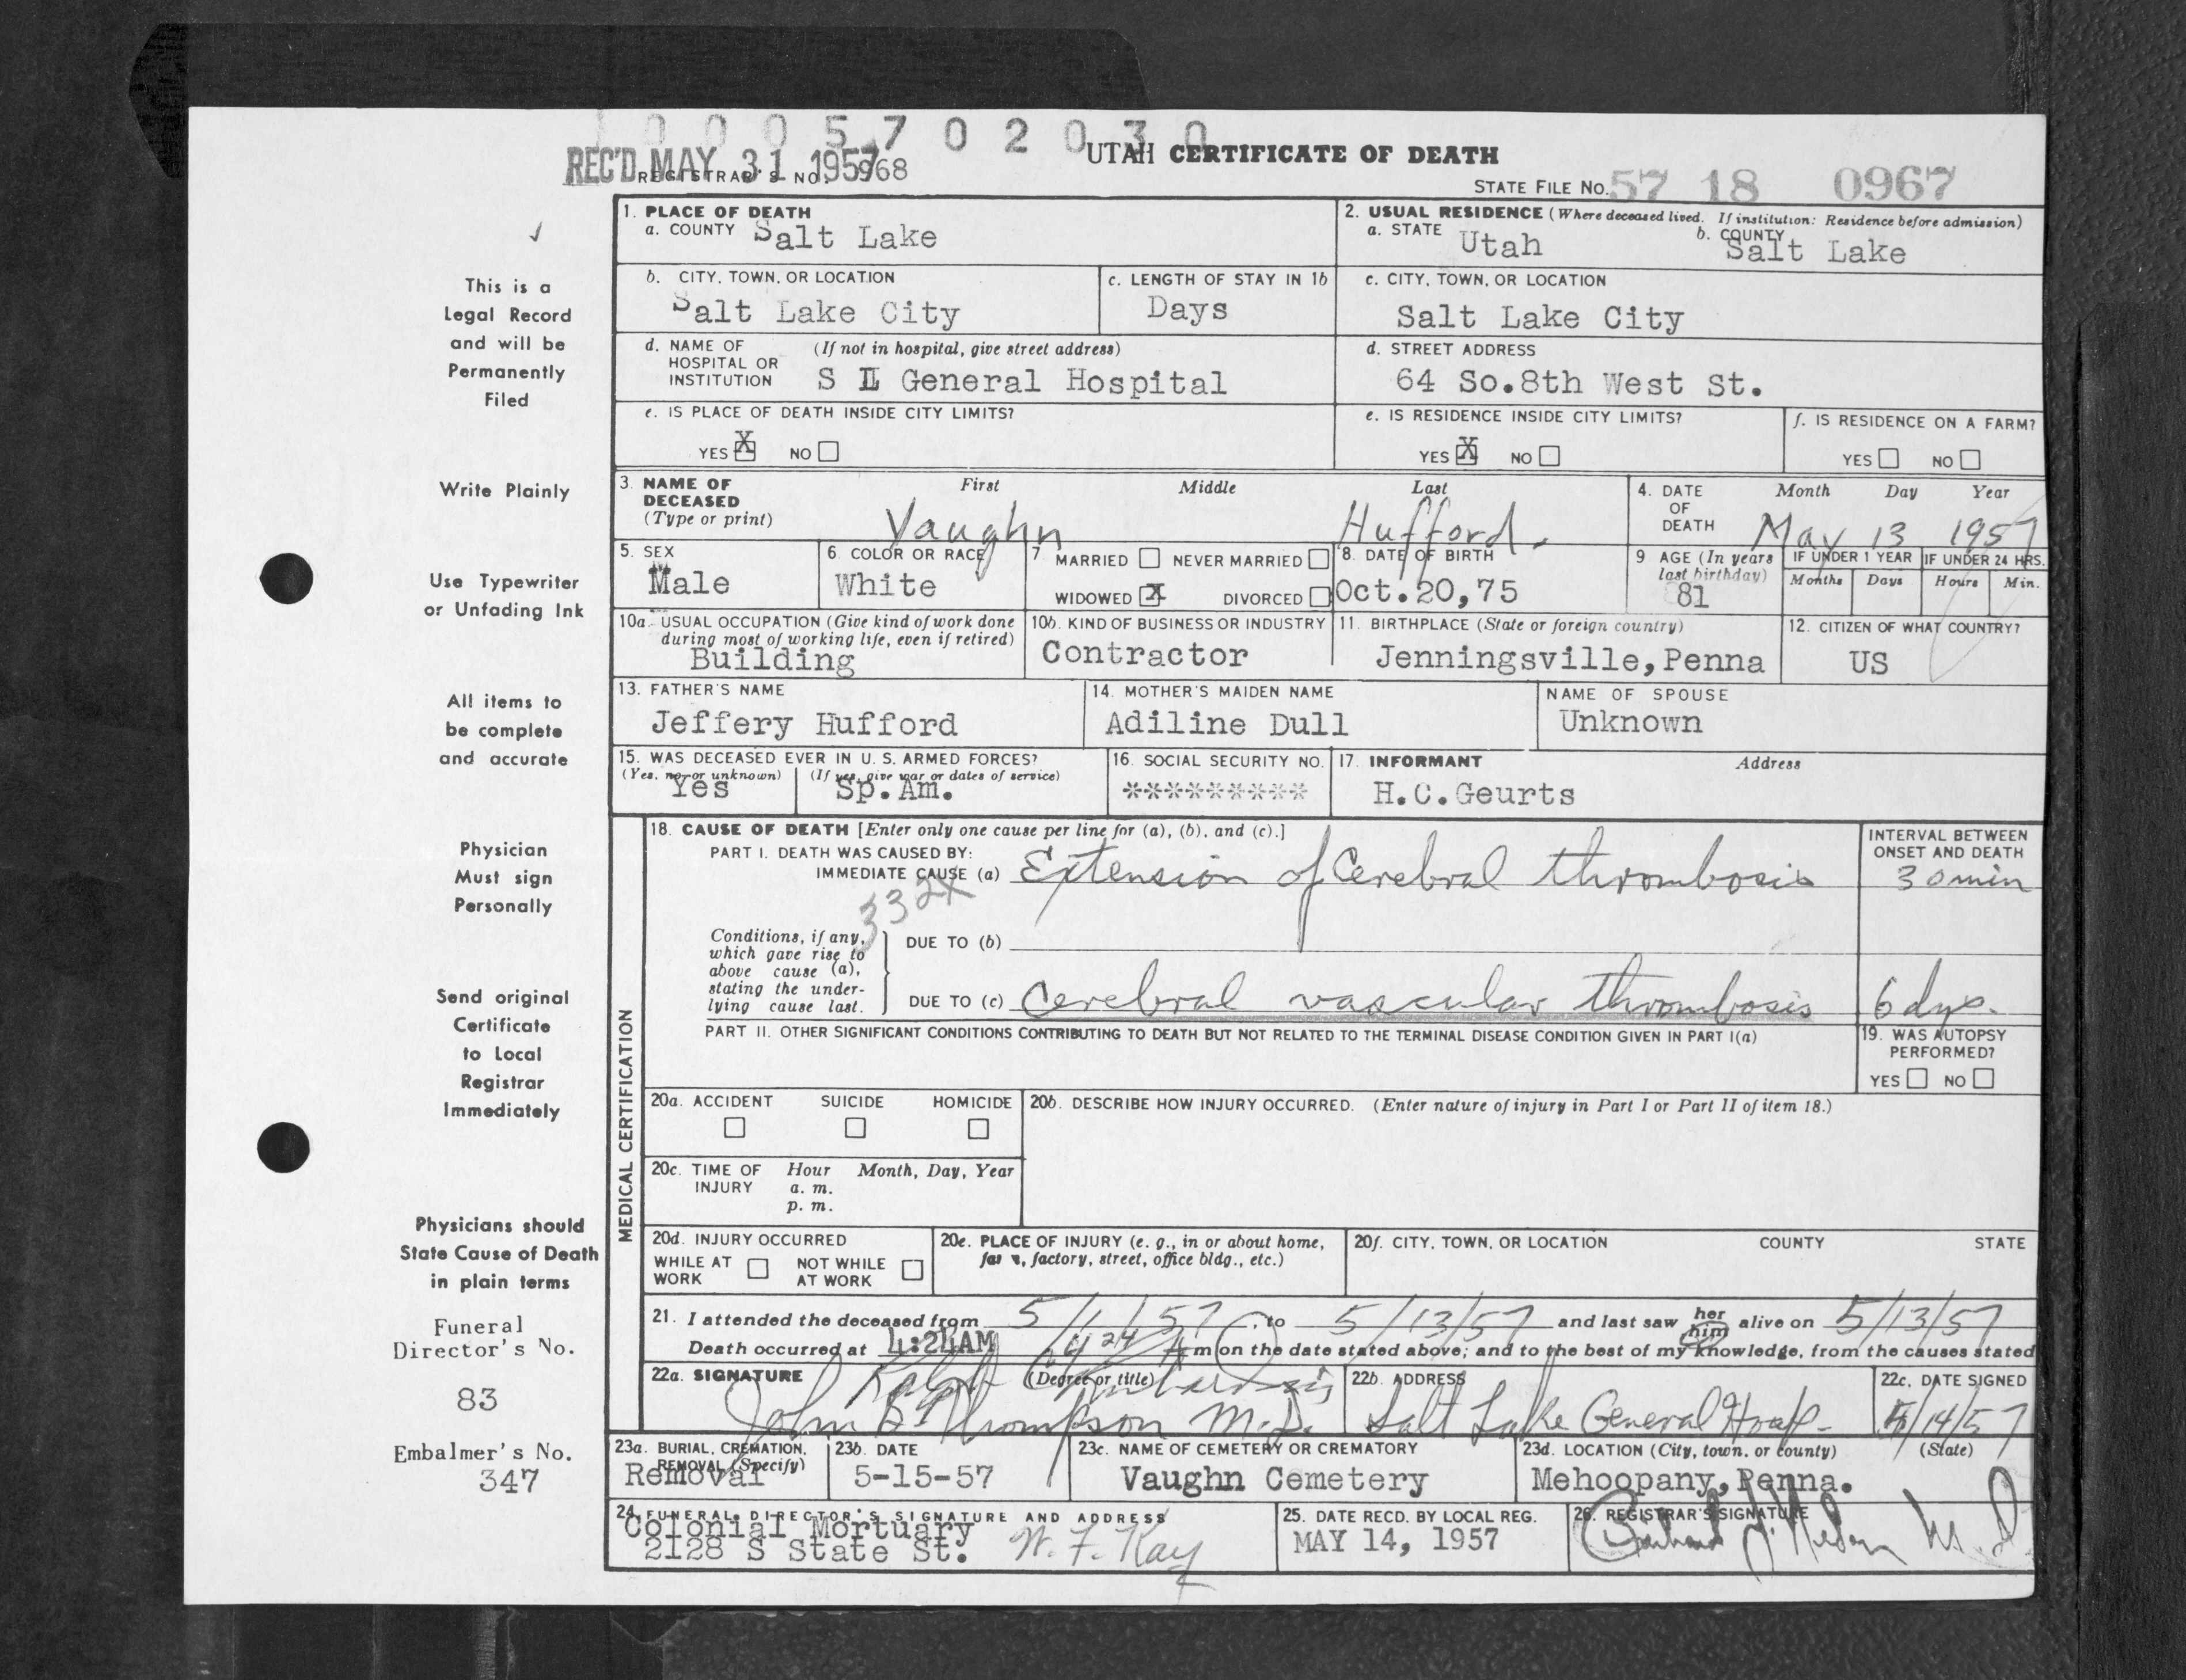 1 0 0 0 5 7 0 2 0 3 0
REC'D MAY 31 1957
REGISTRAR'S NO. 968
UTAH CERTIFICATE OF DEATH
STATE FILE NO. 57 18 0967
1. PLACE OF DEATH
a. COUNTY Salt Lake
2. USUAL RESIDENCE (Where deceased lived. If institution: Residence before admission)
a. STATE Utah b. COUNTY Salt Lake
b. CITY, TOWN, OR LOCATION
Salt Lake City
c. LENGTH OF STAY IN 1b
Days
c. CITY, TOWN, OR LOCATION
Salt Lake City
d. NAME OF HOSPITAL OR INSTITUTION (If not in hospital, give street address)
S L General Hospital
d. STREET ADDRESS
64 So.8th West St.
e. IS PLACE OF DEATH INSIDE CITY LIMITS?
YES X NO
e. IS RESIDENCE INSIDE CITY LIMITS?
YES X NO
f. IS RESIDENCE ON A FARM?
YES NO
3. NAME OF DECEASED (Type or print)
First Middle Last
Vaughn Hufford.
4. DATE OF DEATH
Month Day Year
May 13 1957
5. SEX
Male
6. COLOR OR RACE
White
7. MARRIED NEVER MARRIED
WIDOWED X DIVORCED
8. DATE OF BIRTH
Oct.20,75
9 AGE (In years last birthday)
81
IF UNDER 1 YEAR
Months Days
IF UNDER 24 HRS.
Hours Min.
10a. USUAL OCCUPATION (Give kind of work done during most of working life, even if retired)
Building
10b. KIND OF BUSINESS OR INDUSTRY
Contractor
11. BIRTHPLACE (State or foreign country)
Jenningsville,Penna
12. CITIZEN OF WHAT COUNTRY?
US
13. FATHER'S NAME
Jeffery Hufford
14. MOTHER'S MAIDEN NAME
Adiline Dull
NAME OF SPOUSE
Unknown
15. WAS DECEASED EVER IN U. S. ARMED FORCES?
(Yes, no, or unknown) (If yes, give war or dates of service)
Yes Sp.Am.
16. SOCIAL SECURITY NO.
*********
17. INFORMANT Address
H.C.Geurts
MEDICAL CERTIFICATION
18. CAUSE OF DEATH [Enter only one cause per line for (a), (b), and (c).]
PART I. DEATH WAS CAUSED BY:
IMMEDIATE CAUSE (a) Extension of Cerebral thrombosis
INTERVAL BETWEEN ONSET AND DEATH
30 min
332X
Conditions, if any, which gave rise to above cause (a), stating the underlying cause last.
DUE TO (b)
DUE TO (c) Cerebral vascular thrombosis
6 dys.
PART II. OTHER SIGNIFICANT CONDITIONS CONTRIBUTING TO DEATH BUT NOT RELATED TO THE TERMINAL DISEASE CONDITION GIVEN IN PART I(a)
19. WAS AUTOPSY PERFORMED?
YES NO
20a. ACCIDENT SUICIDE HOMICIDE
20b. DESCRIBE HOW INJURY OCCURRED. (Enter nature of injury in Part I or Part II of item 18.)
20c. TIME OF INJURY Hour Month, Day, Year
a. m.
p. m.
20d. INJURY OCCURRED
WHILE AT WORK NOT WHILE AT WORK
20e. PLACE OF INJURY (e. g., in or about home, farm, factory, street, office bldg., etc.)
20f. CITY, TOWN, OR LOCATION COUNTY STATE
21. I attended the deceased from 5/1/57, to 5/13/57 and last saw her him alive on 5/13/57
Death occurred at 4:24AM 4 24 A m on the date stated above; and to the best of my knowledge, from the causes stated
22a. SIGNATURE (Degree or title)
Ralph
John B. Thompson M.D.
22b. ADDRESS
Salt Lake General Hosp.
22c. DATE SIGNED
5/14/57
23a. BURIAL, CREMATION, REMOVAL (Specify)
Removal
23b. DATE
5-15-57
23c. NAME OF CEMETERY OR CREMATORY
Vaughn Cemetery
23d. LOCATION (City, town, or county) (State)
Mehoopany,Penna.
24. FUNERAL DIRECTOR'S SIGNATURE AND ADDRESS
Colonial Mortuary
2128 S State St. W. F. Kay
25. DATE RECD. BY LOCAL REG.
MAY 14, 1957
26. REGISTRAR'S SIGNATURE
M.D.
This is a
Legal Record
and will be
Permanently
Filed
Write Plainly
Use Typewriter
or Unfading Ink
All items to
be complete
and accurate
Physician
Must sign
Personally
Send original
Certificate
to Local
Registrar
Immediately
Physicians should
State Cause of Death
in plain terms
Funeral
Director's No.
83
Embalmer's No.
347